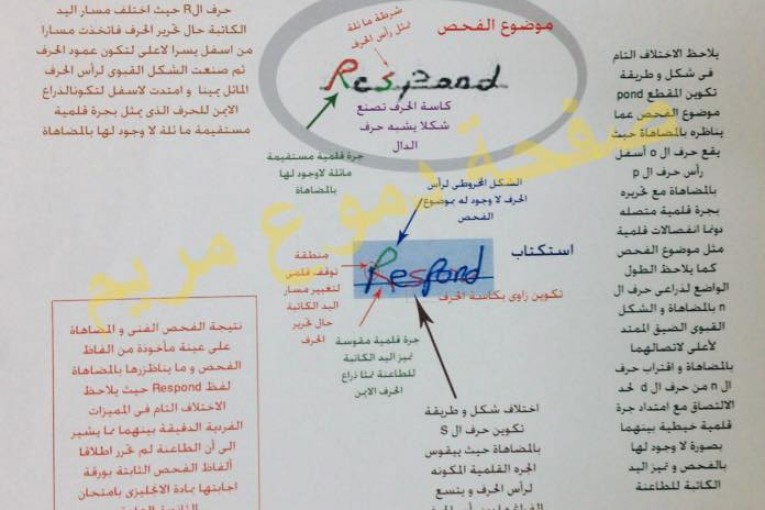 موضوع الفحص
شرطة مائلة
تمثل رأس الحرف
Respond
كاسة الحرف تصنع
شكلا يشبه حرف
الدال
جرة قلمية مستقيمة
مائلة لاوجود لها
بالمضاهاة
حرف الR حيث اختلف مسار اليد
الكاتبة حال تحرير الحرف فاتخذت مسارا
من اسفل يسرا لاعلى لتكون عمود الحرف
ثم صنعت الشكل القبوى لرأس الحرف
المائل يمينا و امتدت لاسفل لتكون الذراع
الايمن للحرف الذى يمثل بجرة قلمية
مستقيمة مائلة لا وجود لها بالمضاهاة
يلاحظ الاختلاف التام
فى شكل و طريقة
تكوين المقطع pond
موضوع الفحص عما
يناظره بالمضاهاة حيث
يقع حرف ال o أسفل
رأس حرف ال p
بالمضاهاة مع تحريره
بجرة قلمية متصله
دونما انفصالات قلمية
مثل موضوع الفحص
كما يلاحظ الطول
الواضع لذراعى حرف ال
n بالمضاهاة و الشكل
القبوى الضيق الممتد
لأعلى لاتصالهما
بالمضاهاة و اقتراب حرف
ال n من حرف ال d لحد
الالتصاق مع امتداد جرة
قلمية خيطية بينهما
بصورة لا وجود لها
بالفحص و تميز اليد
الكاتبة للطاعنة
الشكل المخروطى لرأس
الحرف لا وجود له بموضوع
الفحص
استكتاب
Respond
تكوين زاوى بكاسة الحرف
منطقة
توقف قلمى
لتغيير مسار
اليد الكاتبة
حال تحرير
الحرف
جرة قلمية مقوسة
تميز اليد الكاتبة
للطاعنة تمثل ذراع
الحرف الايمن
اختلاف شكل و طريقة
تكوين حرف ال S
بالمضاهاة حيث يتقوس
الجره القلمية المكونه
لرأس الحرف و يتسع
نتيجة الفحص الفنى و المضاهاة
على عينة مأخوذة من الفاظ
الفحص و ما يناظرها بالمضاهاة
لفظ Respond حيث يلاحظ
الاختلاف التام فى المميزات
الفردية الدقيقة بينهما مما يشير
الى أن الطاعنة لم تحرر اطلاقا
ألفاظ الفحص الثابتة بورقة
اجابتها بمادة الانجليزى بامتحان
صفحة دموع مريم